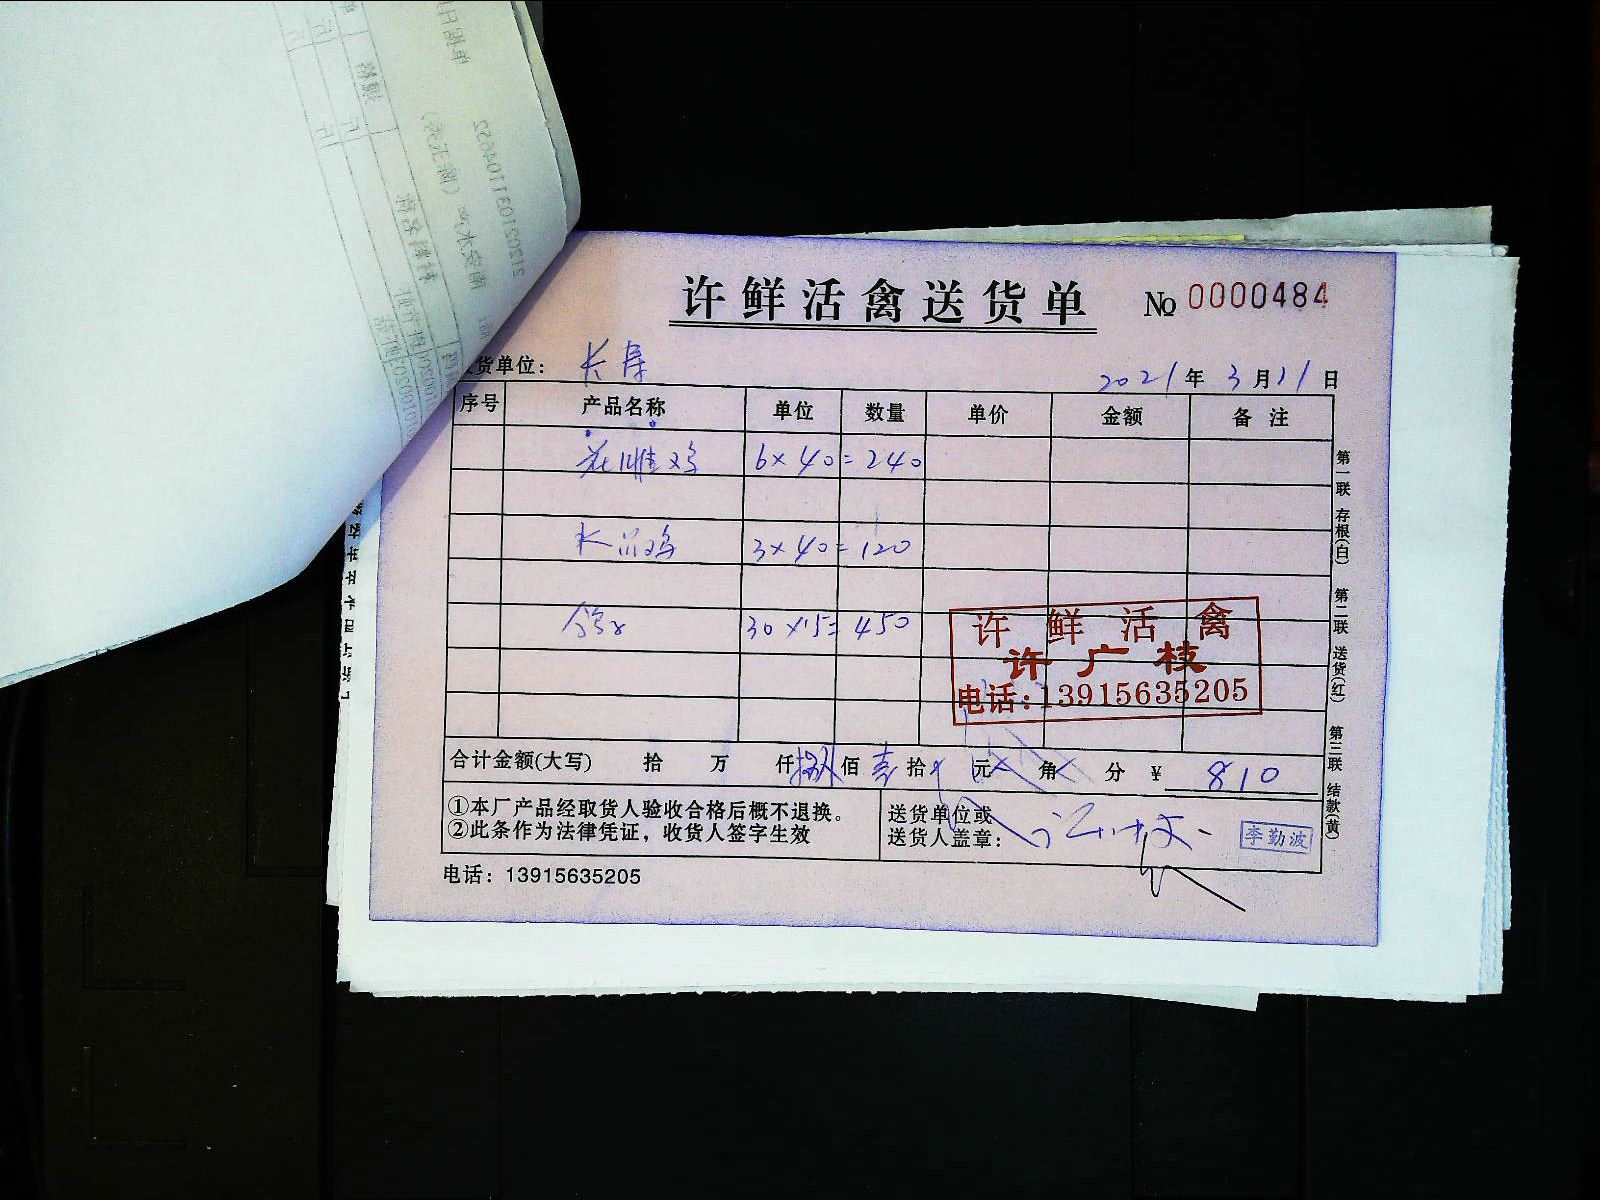 许鲜活禽送货单 № 0000484
货单位： 长寿
2021年 3月11日
序号 产品名称 单位 数量 单价 金额 备注
花雕鸡 6×40=240
鸡 3×40=120
鸽 30×15=450
许鲜活禽
许广枝
电话：13915635205
合计金额(大写) 拾 万 仟捌佰壹拾 元 角 分 ¥ 810
①本厂产品经取货人验收合格后概不退换。
②此条作为法律凭证，收货人签字生效
送货单位或
送货人盖章：
李勤波
电话：13915635205
第一联 存根(白) 第二联 送货(红) 第三联 结款(黄)